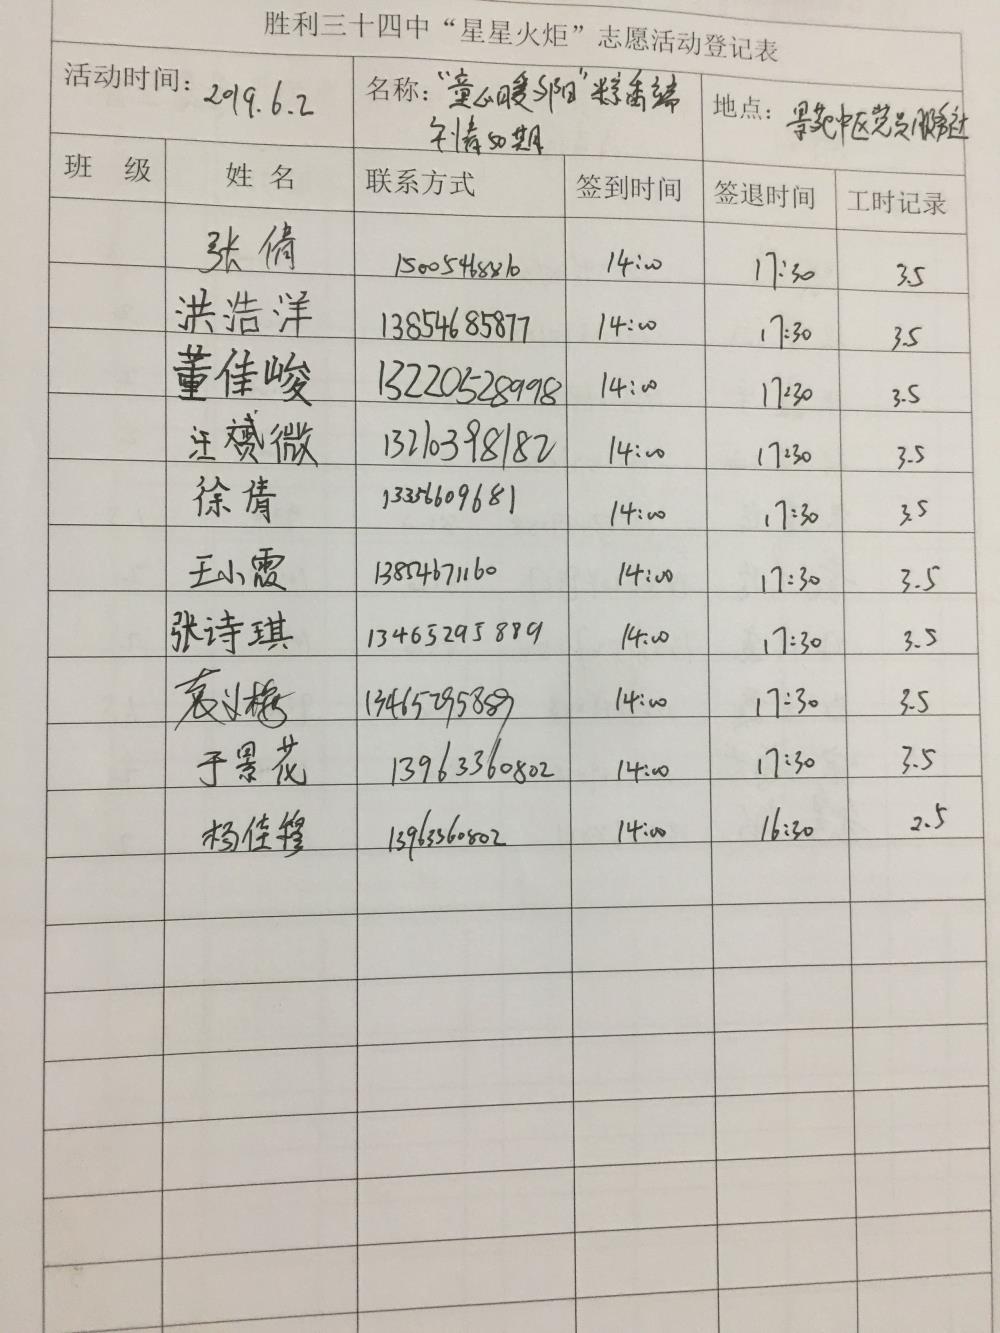 胜利三十四中“星星火炬”志愿活动登记表
活动时间： 2019.6.2 名称：“童心暖夕阳”粽香端 地点：景苑中区党员服务社
午情50期
班 级 姓 名 联系方式 签到时间 签退时间 工时记录
张倩 14:00 17:30 3.5
洪浩洋 13854685877 14:00 17:30 3.5
董佳峻 13220528998 14:00 17:30 3.5
汪赟微 13210398182 14:00 17:30 3.5
徐倩 13356609681 14:00 17:30 3.5
王小霞 13854671160 14:00 17:30 3.5
张诗琪 13465295889 14:00 17:30 3.5
袁义梅 13465295889 14:00 17:30 3.5
于景花 13963360802 14:00 17:30 3.5
杨佳穆 13963360802 14:00 16:30 2.5